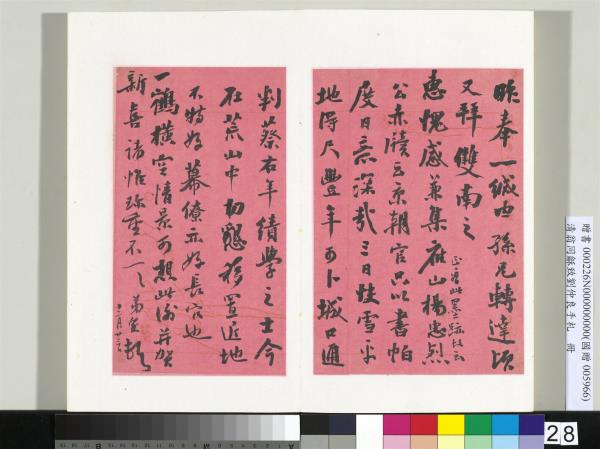 昨奉一緘由孫兄轉達頃
又拜雙南之
惠愧感兼集唐山楊忠烈
正書此墨跡故云
公赤牘云京朝官只以書帕
度日意深哉三日快雪平
地得尺豐年可卜城口通
判蔡右年績學之士今
在荒山中初擬移置近地
不特好幕僚亦好長官也
一鶴橫空情景可想此泐并賀
新喜諸惟珍重不一
弟
十二月廿三
贈書 000226N000000000(國贈 005966)
清翁同龢致劉仲良手札 冊
28